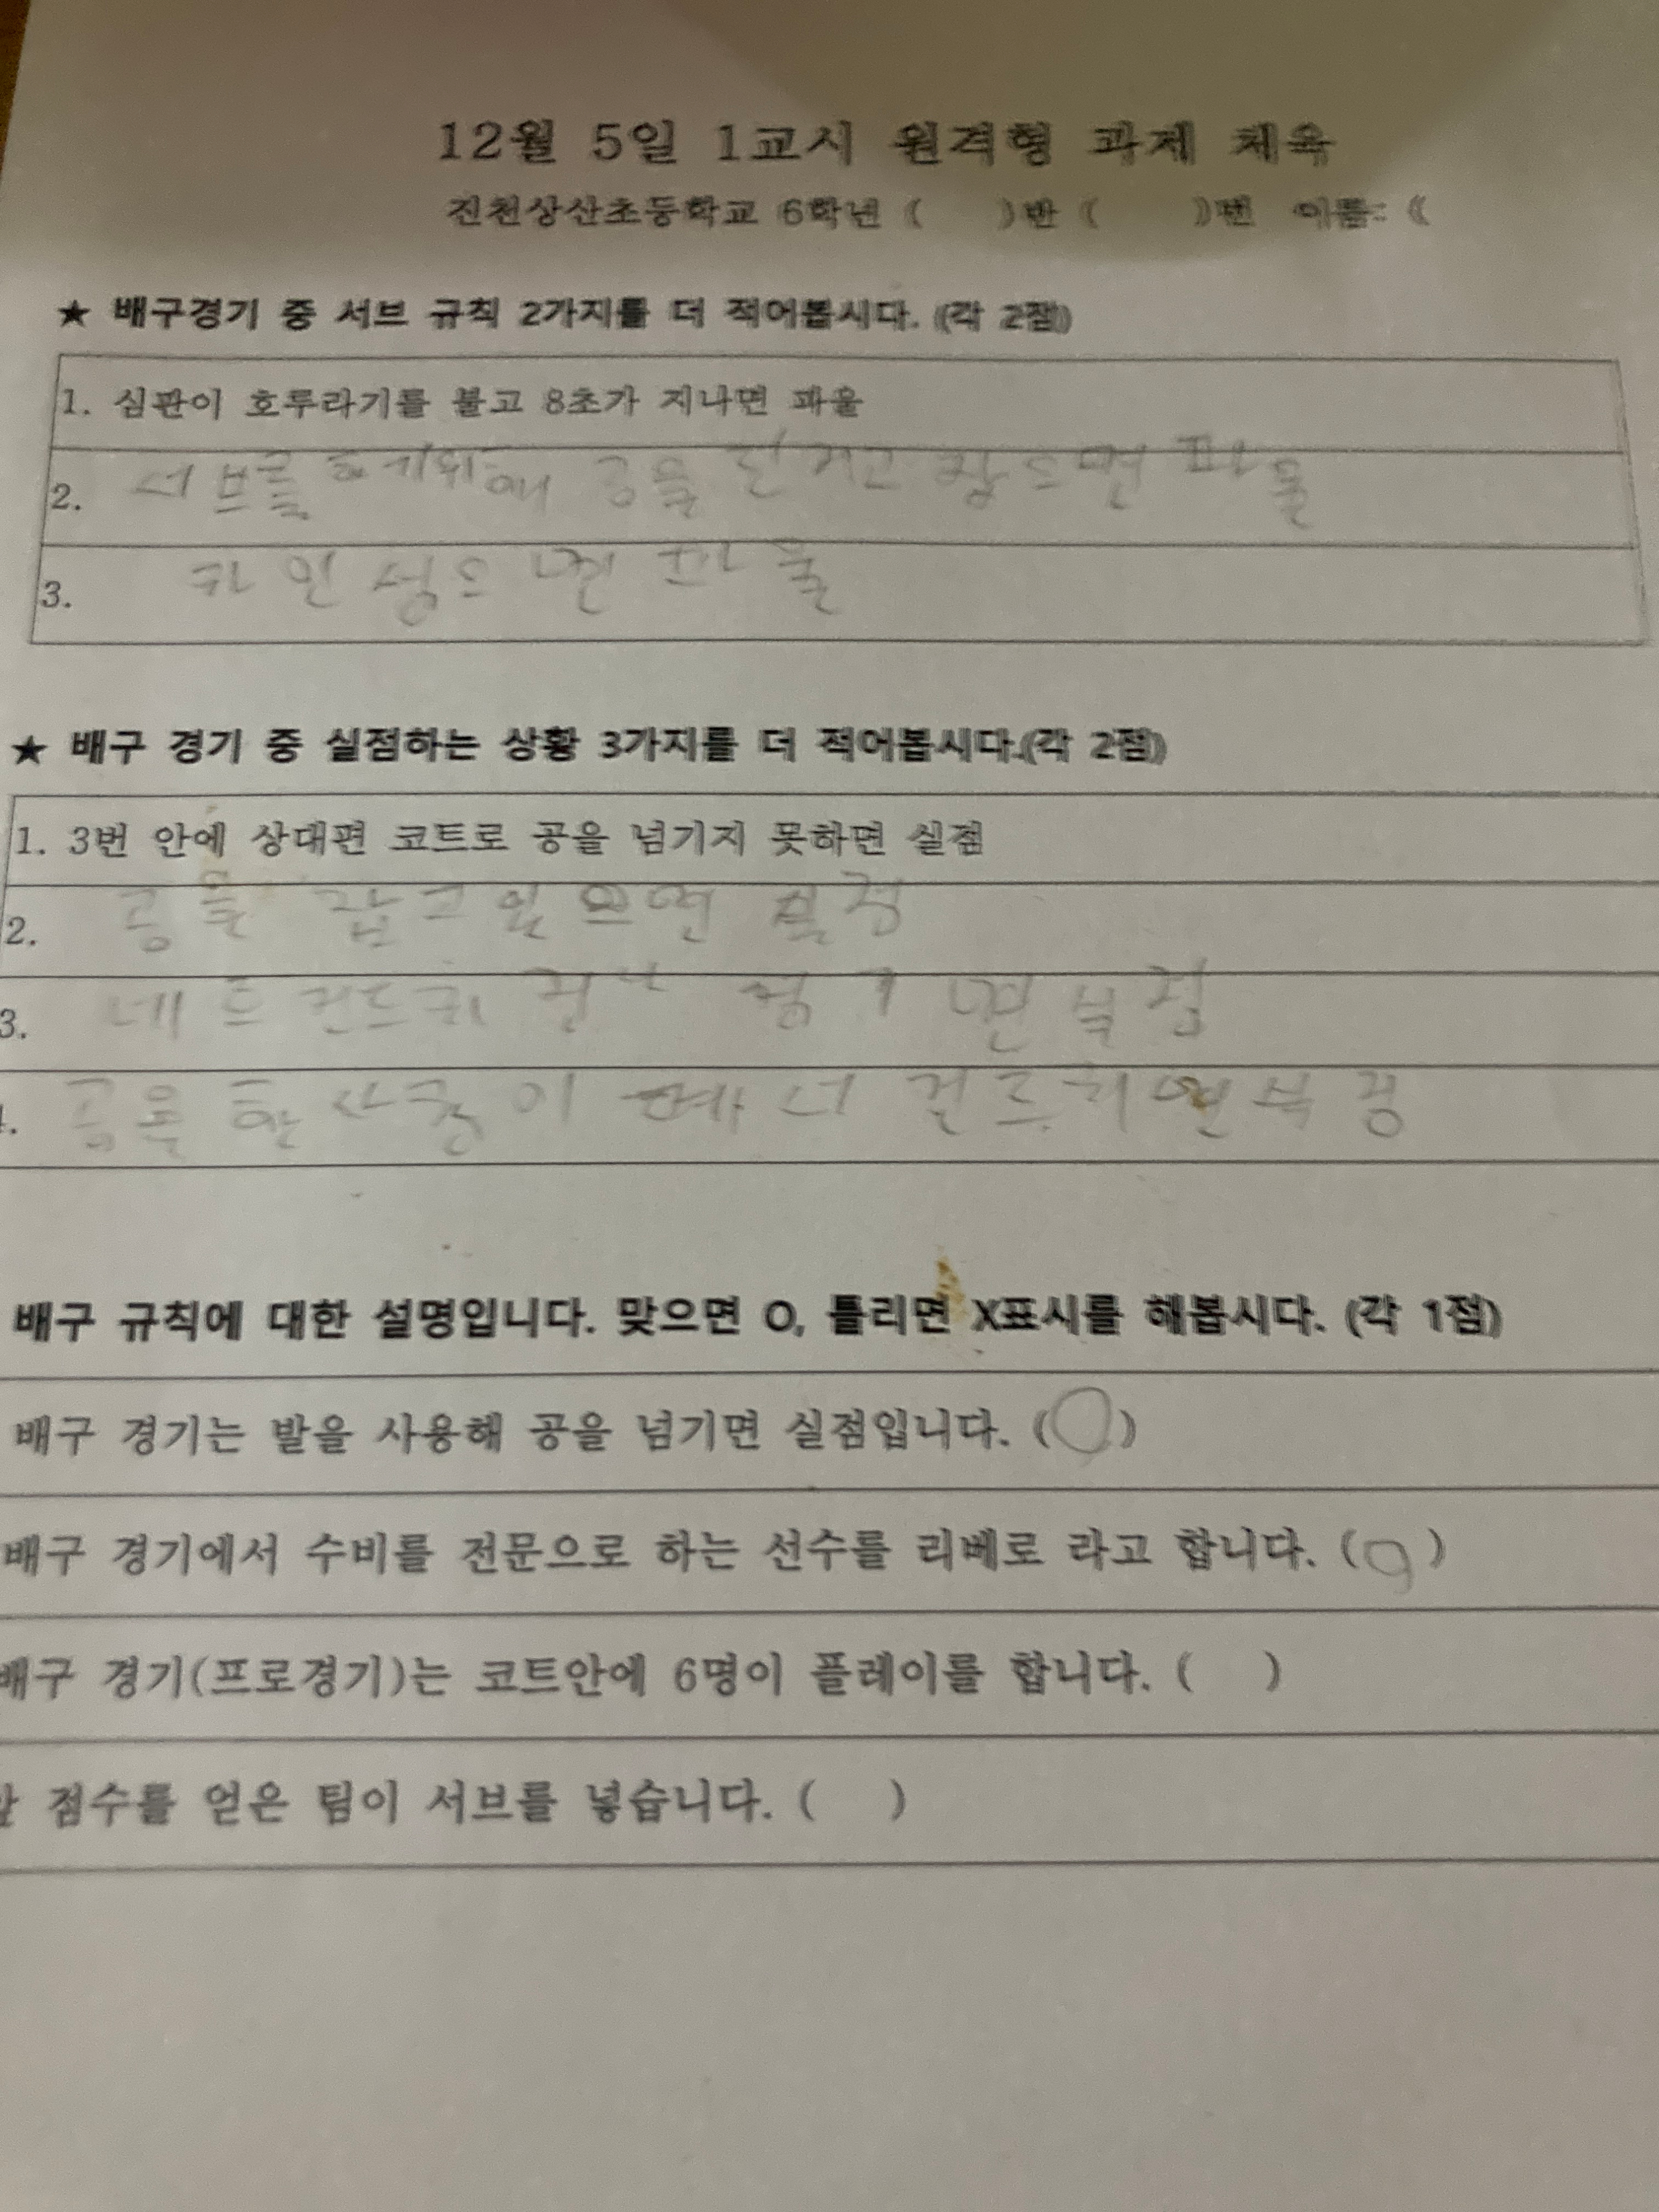 12월 5일 1교시 원격형 과제 체육
진천상산초등학교 6학년 ( )반 ( )번 이름: (
★ 배구경기 중 서브 규칙 2가지를 더 적어봅시다. (각 2점)
1. 심판이 호루라기를 불고 8초가 지나면 파울
2. 서브를 하기위해 공을 던지고 잡으면 파울
3. 라인 넘으면 파울
★ 배구 경기 중 실점하는 상황 3가지를 더 적어봅시다.(각 2점)
1. 3번 안에 상대편 코트로 공을 넘기지 못하면 실점
2. 공을 잡고있으면 실점
3. 네트 건드리 면 실점
공을 한사람이 건드리면 실점
배구 규칙에 대한 설명입니다. 맞으면 O, 틀리면 X표시를 해봅시다. (각 1점)
배구 경기는 발을 사용해 공을 넘기면 실점입니다. (O)
배구 경기에서 수비를 전문으로 하는 선수를 리베로 라고 합니다. (O)
배구 경기(프로경기)는 코트안에 6명이 플레이를 합니다. ( )
점수를 얻은 팀이 서브를 넣습니다. ( )